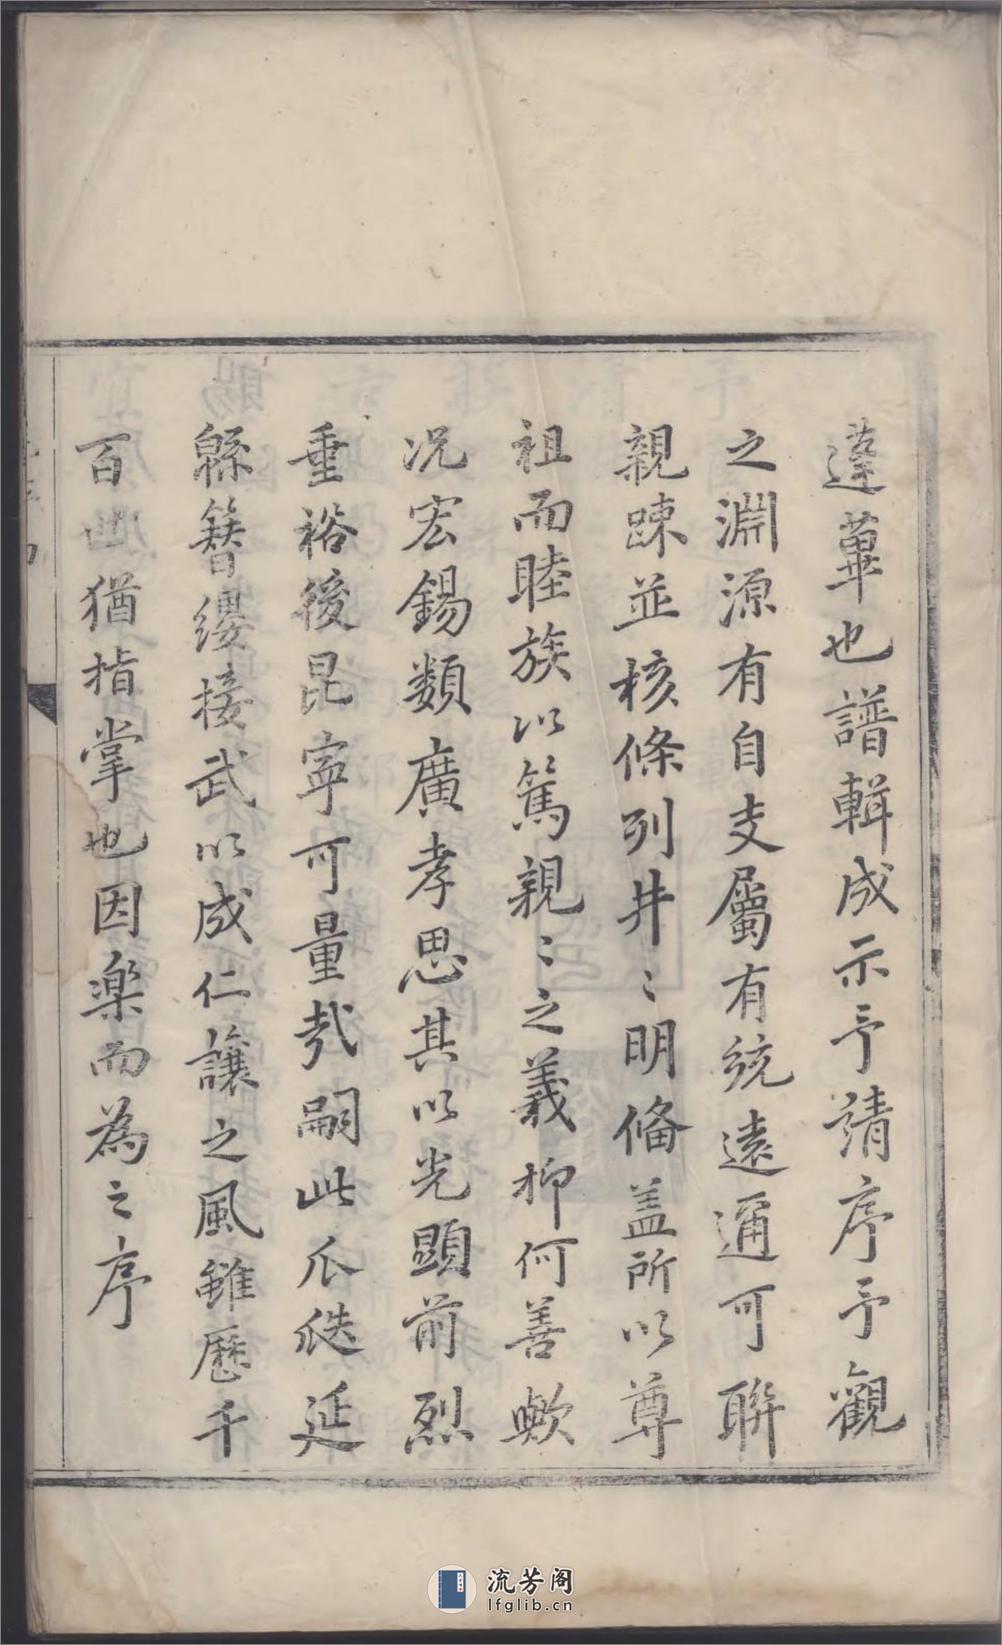 蓬蓽也譜輯成示予請序予觀
之淵源有自支屬有統遠邇可聯
親踈並核條列井〻明俻盖所以尊
祖而睦族以篤親〻之義抑何善歟
况宏錫類廣孝思其以光顕前烈
垂裕後昆寕可量㢤嗣此瓜瓞延
緜簪纓接武以成仁讓之風雖歴千
百世猶指掌也因楽而為之序
流芳阁
lfglib.cn